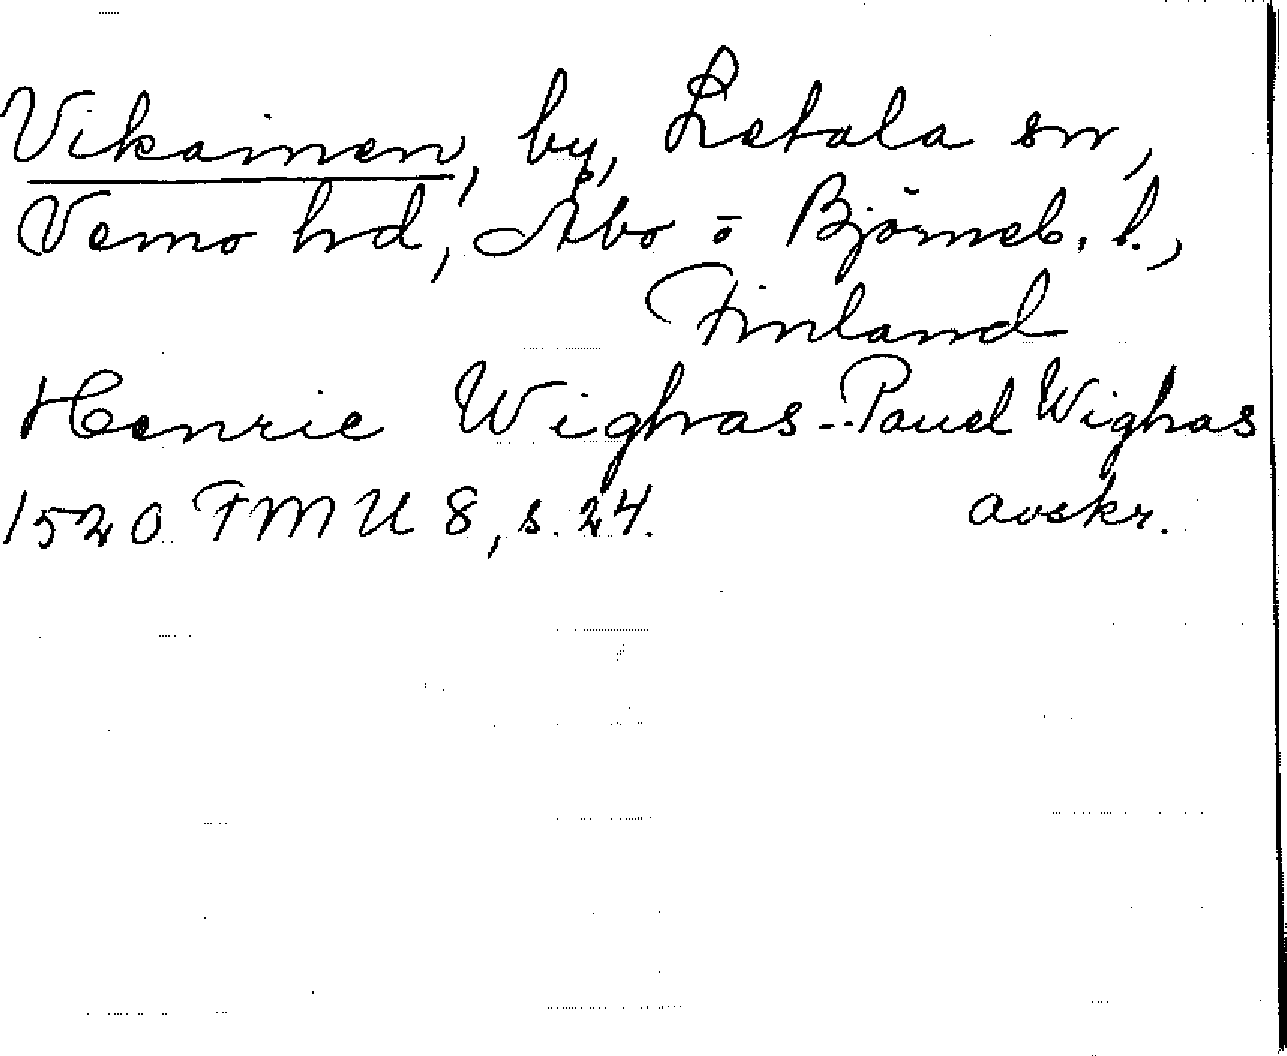 Vikainen, by, Letala sn,
Vemo hd, Åbo o Björneb. l.,
Finland
Henric Wighas -- Pauel Wighas
1520 FMU 8, s. 24. avskr.